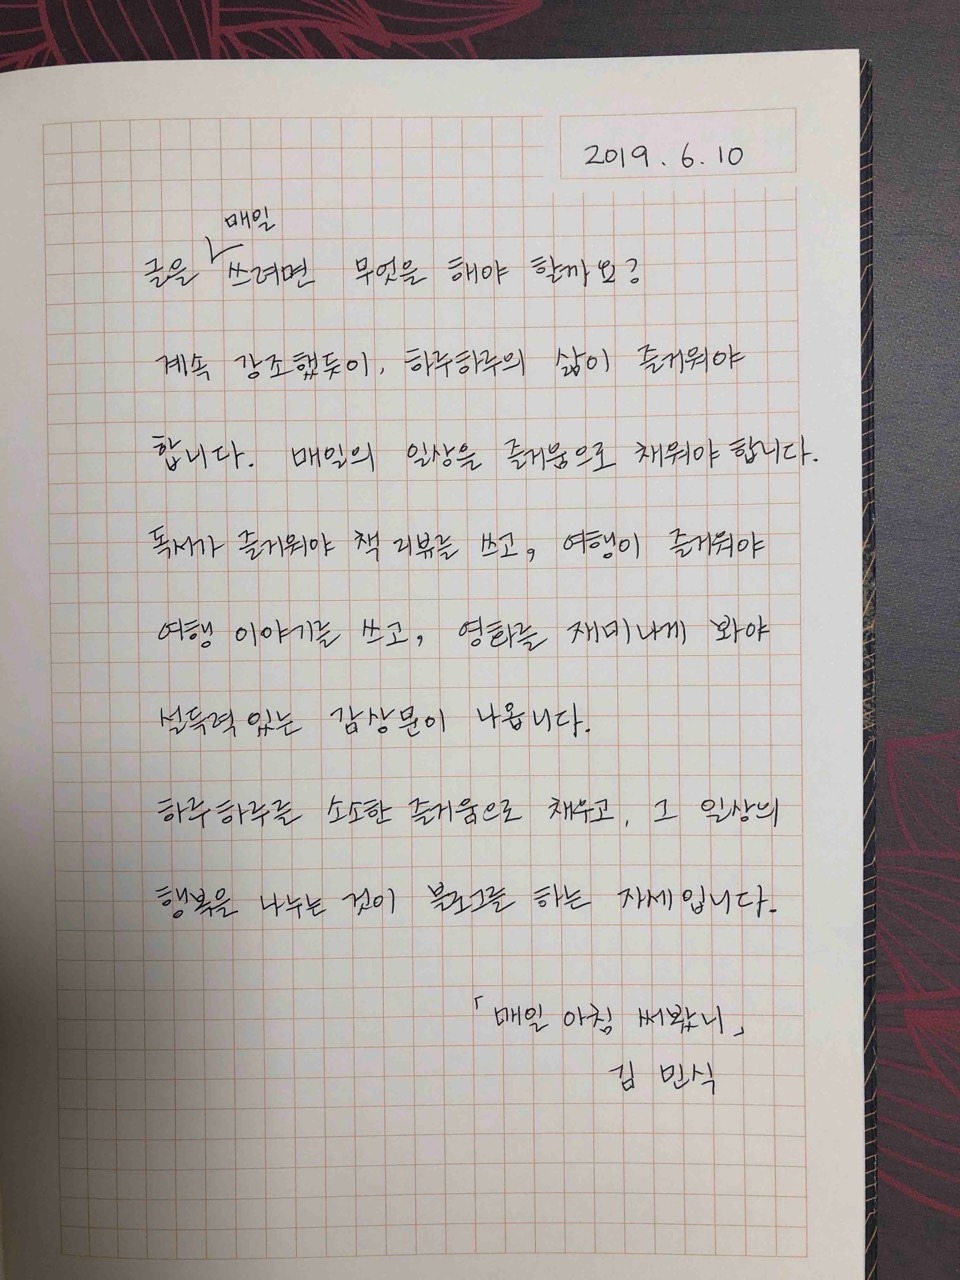 2019. 6. 10
매일
글을 쓰려면 무엇을 해야 할까요?
계속 강조했듯이, 하루하루의 삶이 즐거워야
합니다. 매일의 일상을 즐거움으로 채워야 합니다.
독서가 즐거워야 책 리뷰를 쓰고, 여행이 즐거워야
여행 이야기를 쓰고, 영화를 재미나게 봐야
설득력 있는 감상문이 나옵니다.
하루하루를 소소한 즐거움으로 채우고, 그 일상의
행복을 나누는 것이 블로그를 하는 자세입니다.
「매일 아침 써봤니」
김 민식